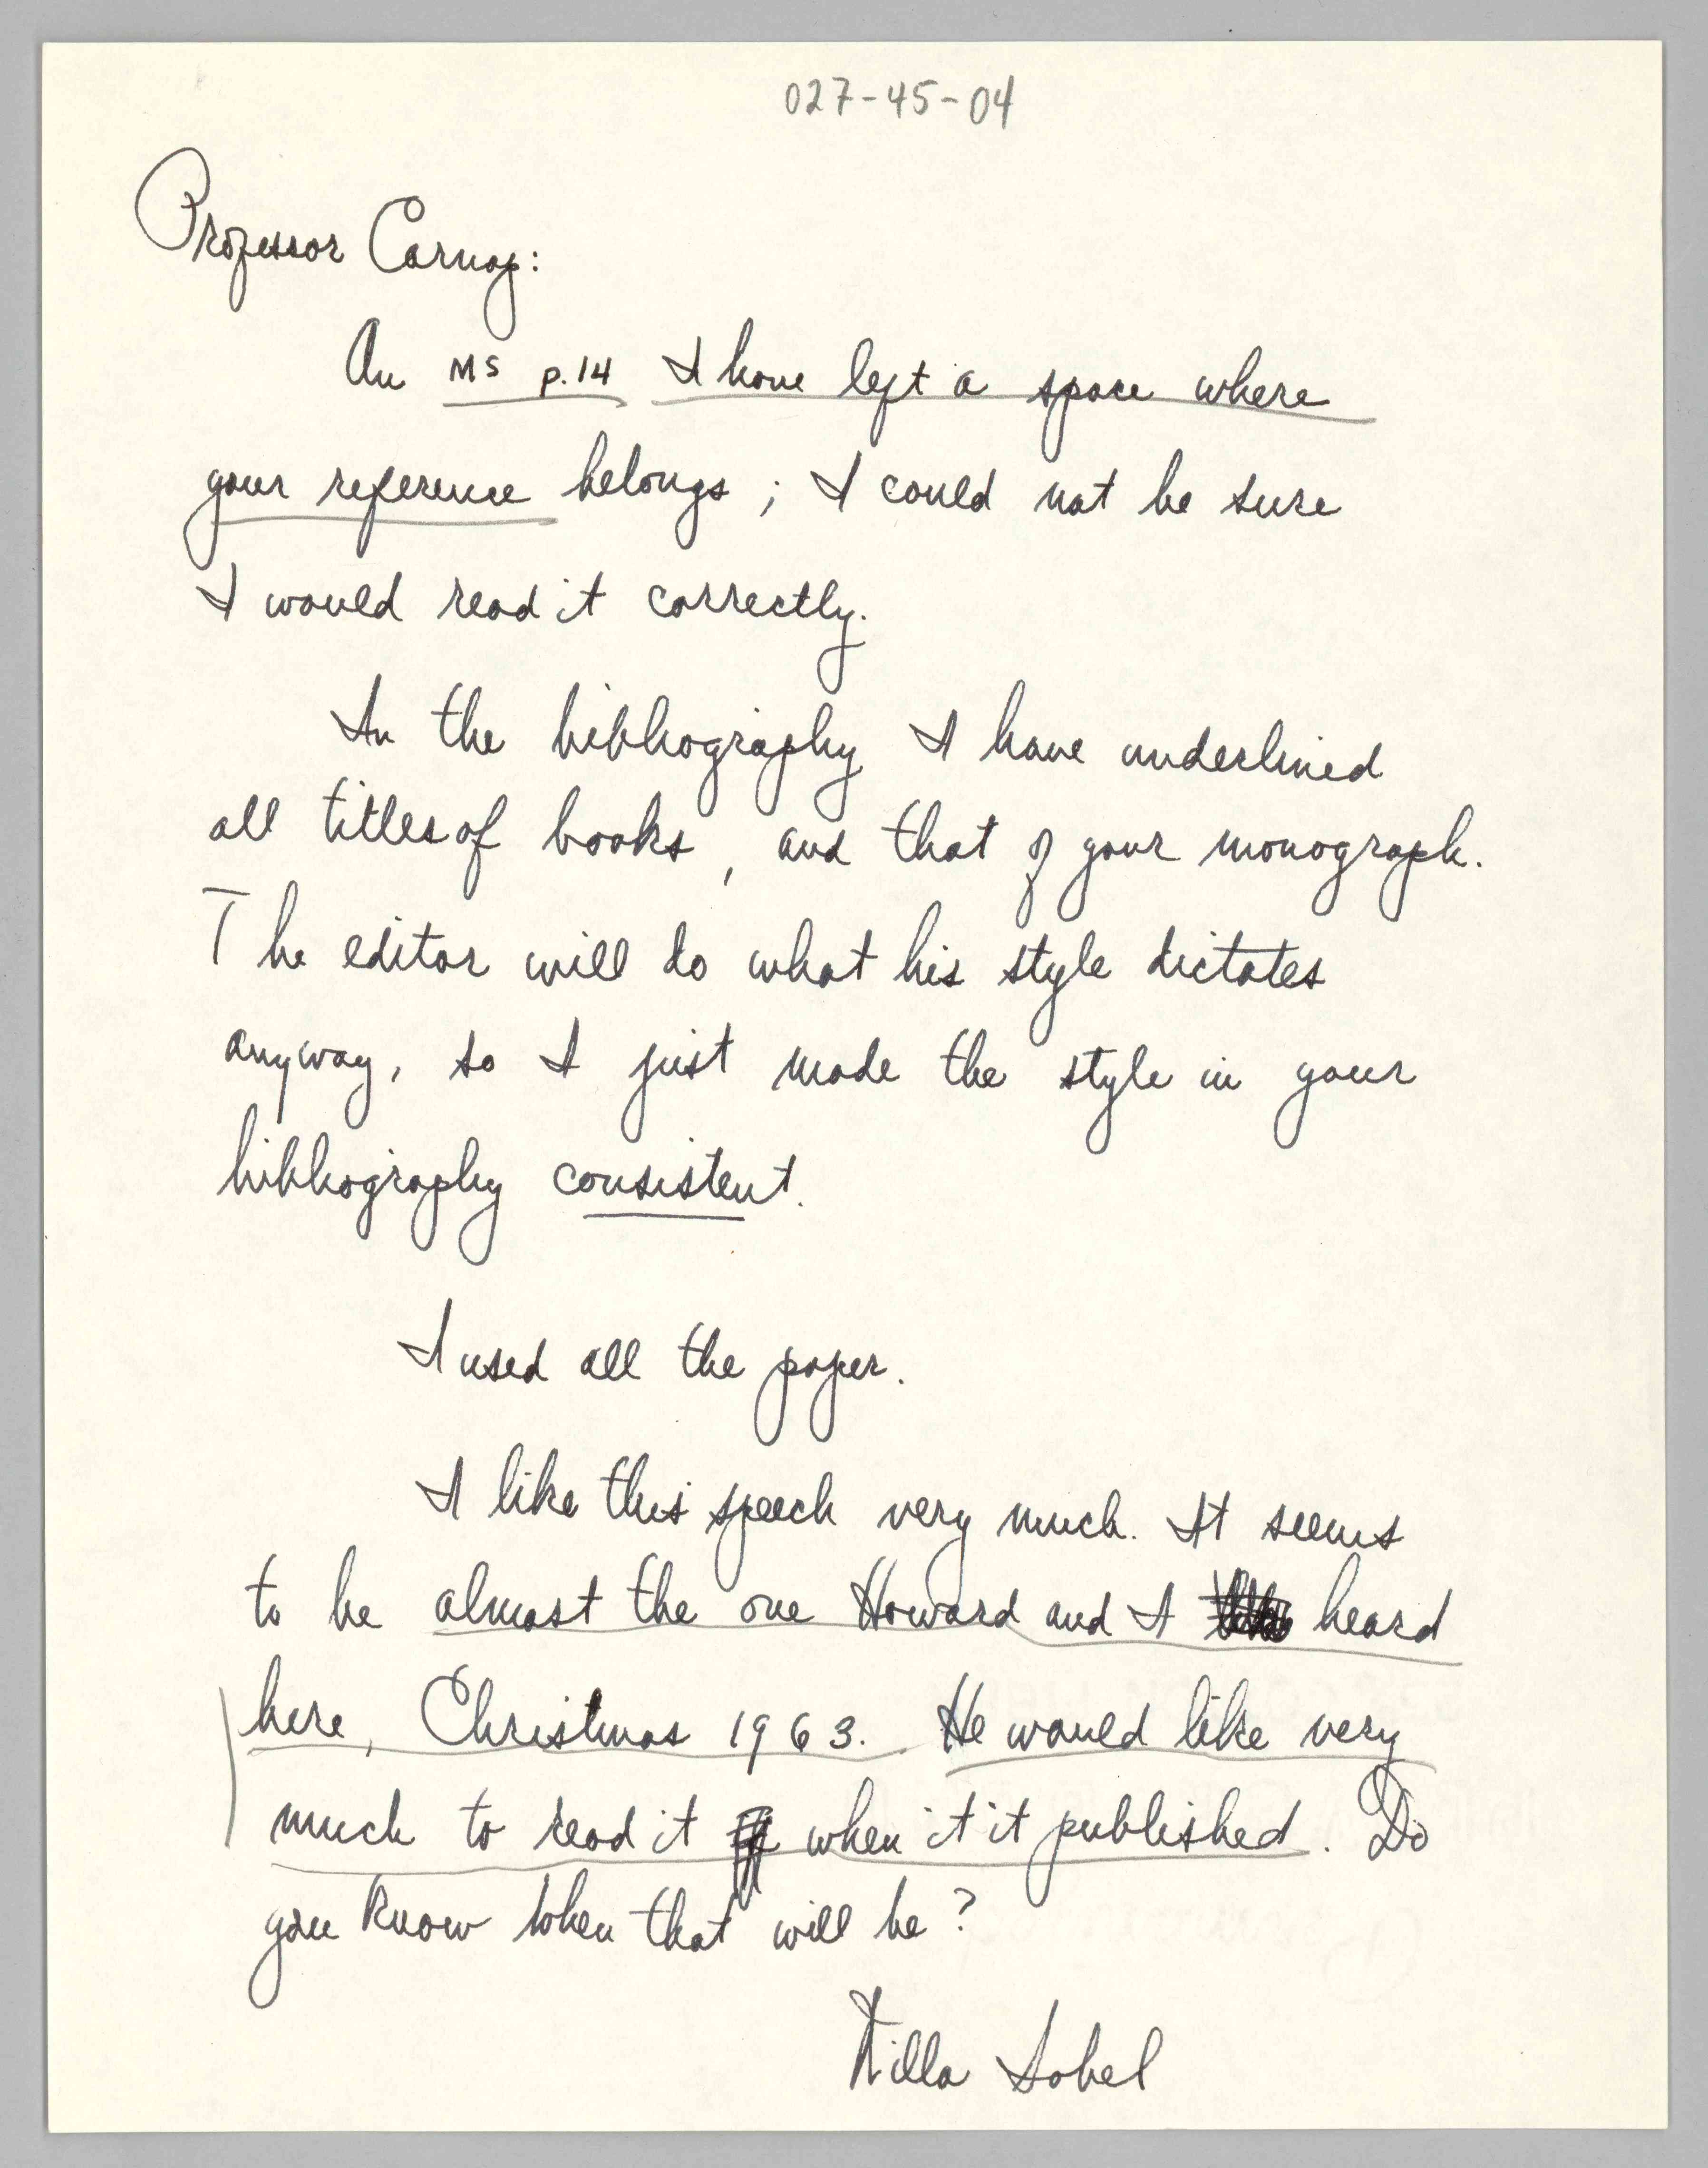 027-45-04
Professor Carnap:
On MS p.14 I have left a space where
your reference belongs; I could not be sure
I would read it correctly.
In the bibliography I have underlined
all titles of books, and that of your monograph.
The editor will do what his style dictates
anyway, so I just made the style in your
bibliography consistent.
I used all the paper.
I like this speech very much. It seems
to be almost the one Howard and I heard
here, Christmas 1963. He would like very
much to read it when it it published. Do
you know when that will be?
Willa Sobel